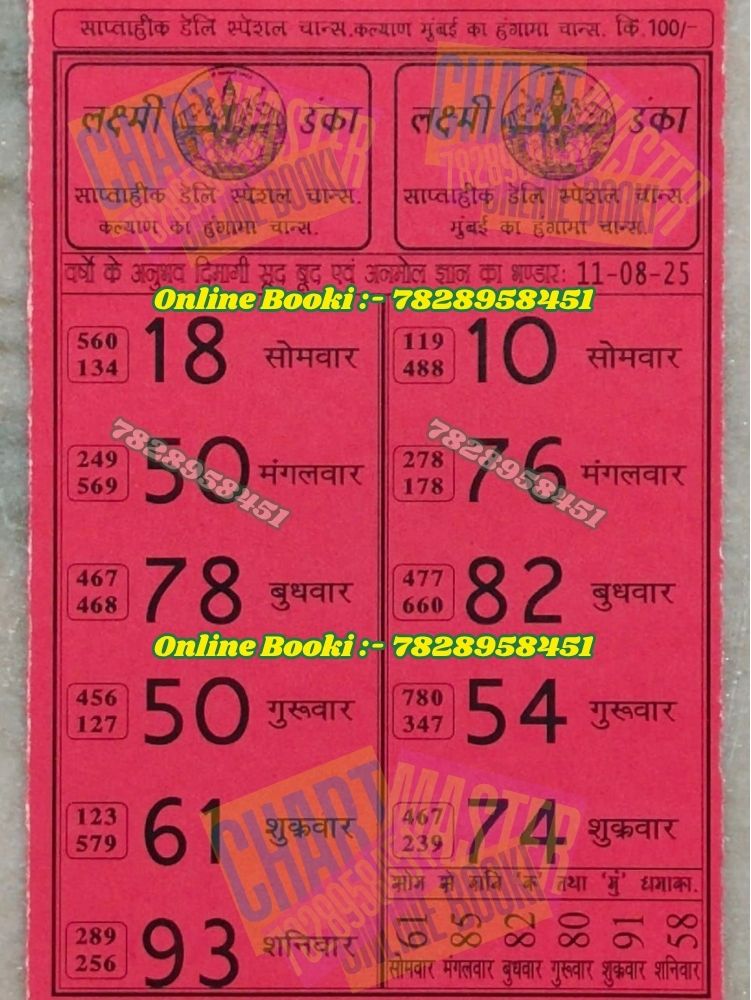 साप्ताहीक डेलि स्पेशल चान्स.कल्याण मुंबई का हंगामा चान्स. कि.100/-
लक्ष्मी डंका
साप्ताहीक डेलि स्पेशल चान्स.
कल्याण का हुंगामा चान्स.
लक्ष्मी डंका
साप्ताहीक डेलि स्पेशल चान्स.
मुंबई का हुंगामा चान्स.
वर्षो के अनुभव दिमागी सूद बूद एवं अनमोल ज्ञान का भण्डारः 11-08-25
Online Booki :- 7828958451
560
134
18 सोमवार
249
569
50 मंगलवार
467
468
78 बुधवार
456
127
50 गुरूवार
123
579
61 शुक्रवार
289
256
93 शनिवार
119
488
10 सोमवार
278
178
76 मंगलवार
477
660
82 बुधवार
780
347
54 गुरूवार
467
239
74 शुक्रवार
सोम से शनि 'क' तथा 'मुं' धमाका.
61 85 82 80 91 58
सोमवार मंगलवार बुधवार गुरूवार शुक्रवार शनिवार
7828958451
7828958451
Online Booki :- 7828958451
CHART MASTER
7828958451
ONLINE BOOKI
CHART MASTER
7828958451
ONLINE BOOKI
CHART MASTER
7828958451
ONLINE BOOKI
CHART MASTER
7828958451
ONLINE BOOKI